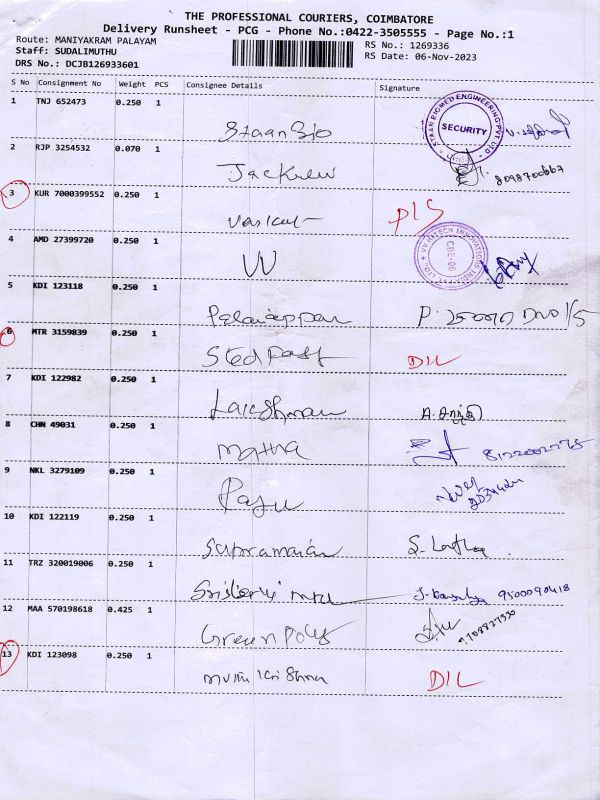 THE PROFESSIONAL COURIERS, COIMBATORE
Delivery Runsheet - PCG - Phone No.:0422-3505555 - Page No.:1
Route: MANIYAKRAM PALAYAM RS No.: 1269336
Staff: SUDALIMUTHU RS Date: 06-Nov-2023
DRS No.: DCJB126933601
S No Consignment No Weight PCS Consignee Details Signature
1 TNJ 652473 0.250 1
Staan Bio
STAAN BIOMED ENGINEERING PVT LTD
SECURITY
2 RJP 3254532 0.070 1
8098700667
3 KUR 7000399552 0.250 1
PIS
4 AMD 27399720 0.250 1
VV
VV HITECH INNOVATIONS INDIA PVT. LTD.
CBE-06
5 KDI 123118 0.250 1
Palaniappan P. DNO 1/5
6 MTR 3159839 0.250 1
Stedfast DIL
7 KDI 122982 0.250 1
Lakshman
8 CHN 49031 0.250 1
Matha
9 NKL 3279109 0.250 1
Raju
10 KDI 122119 0.250 1
S. Latha
11 TRZ 320019006 0.250 1
9500090418
12 MAA 570198618 0.425 1
Green Poly
13 KDI 123098 0.250 1
DIL